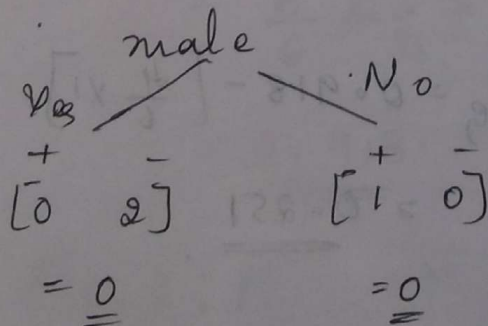 male
Yes No
+ - + -
[0 2] [1 0]
= 0 = 0